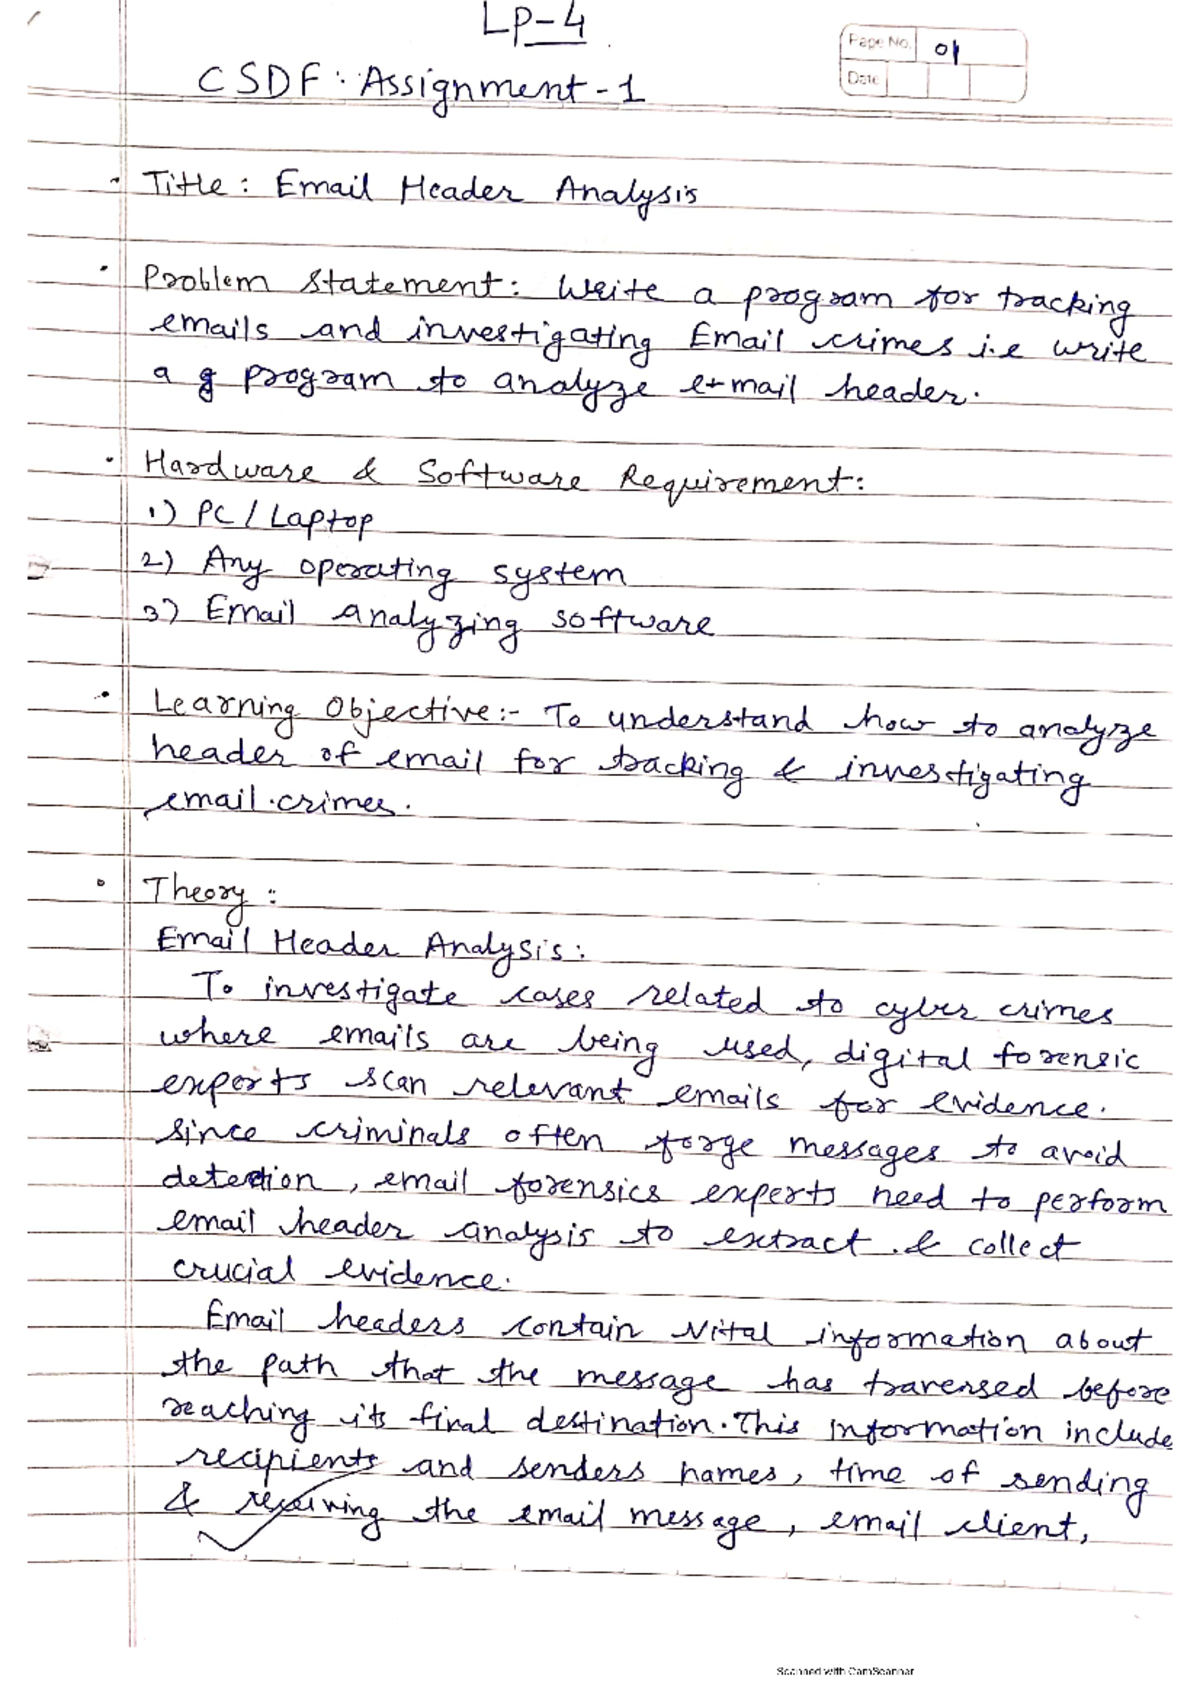 LP-4
Page No. 01
Date
CSDF: Assignment-1
• Title: Email Header Analysis
• Problem statement: Write a program for tracking
emails and investigating Email crimes i.e write
a program to analyze e-mail header.
• Hardware & Software Requirement:
1) PC/Laptop
2) Any operating system
3) Email analyzing software
• Learning Objective:- To understand how to analyze
header of email for tracking & investigating
email crimes.
• Theory:
Email Header Analysis:
To investigate cases related to cyber crimes
where emails are being used, digital forensic
experts scan relevant emails for evidence.
Since criminals often forge messages to avoid
detection, email forensics experts need to perform
email header analysis to extract & collect
crucial evidence.
Email headers contain vital information about
the path that the message has traversed before
reaching its final destination. This information include
recipients and senders names, time of sending
& receiving the email message, email client,
Scanned with CamScanner